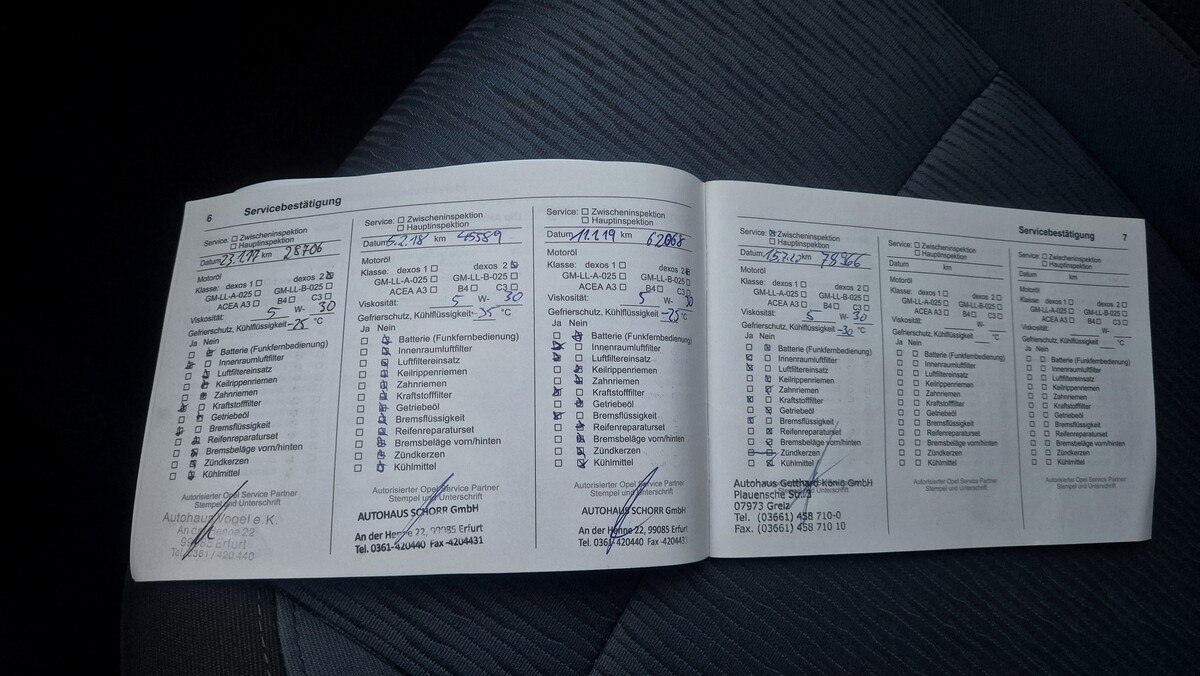 6 Servicebestätigung
Service: ☐ Zwischeninspektion
☐ Hauptinspektion
Datum 23.1.17 km 28706
Motoröl
Klasse: dexos 1 ☐ dexos 2 ☒
GM-LL-A-025 ☐ GM-LL-B-025 ☐
ACEA A3 ☐ B4 ☐ C3 ☐
Viskosität: 5 W- 30
Gefrierschutz, Kühlflüssigkeit -25 °C
Ja Nein
Batterie (Funkfernbedienung)
Innenraumluftfilter
Luftfiltereinsatz
Keilrippenriemen
Zahnriemen
Kraftstofffilter
Getriebeöl
Bremsflüssigkeit
Reifenreparaturset
Bremsbeläge vorn/hinten
Zündkerzen
Kühlmittel
Autorisierter Opel Service Partner
Stempel und Unterschrift
Autohaus Vogel e.K.
An der Henne 22
99085 Erfurt
Tel. 0361 / 420 440
Service: ☐ Zwischeninspektion
☐ Hauptinspektion
Datum 5.2.18 km 45589
Motoröl
Klasse: dexos 1 ☐ dexos 2 ☒
GM-LL-A-025 ☐ GM-LL-B-025 ☐
ACEA A3 ☐ B4 ☐ C3 ☐
Viskosität: 5 W- 30
Gefrierschutz, Kühlflüssigkeit °C
Ja Nein
Batterie (Funkfernbedienung)
Innenraumluftfilter
Luftfiltereinsatz
Keilrippenriemen
Zahnriemen
Kraftstofffilter
Getriebeöl
Bremsflüssigkeit
Reifenreparaturset
Bremsbeläge vorn/hinten
Zündkerzen
Kühlmittel
Autorisierter Opel Service Partner
Stempel und Unterschrift
AUTOHAUS SCHORR GmbH
An der Henne 22, 99085 Erfurt
Tel. 0361-420440 Fax -4204431
Service: ☐ Zwischeninspektion
☐ Hauptinspektion
Datum 11.1.19 km 62068
Motoröl
Klasse: dexos 1 ☐ dexos 2 ☒
GM-LL-A-025 ☐ GM-LL-B-025 ☐
ACEA A3 ☐ B4 ☐ C3 ☐
Viskosität: 5 W- 30
Gefrierschutz, Kühlflüssigkeit -25 °C
Ja Nein
Batterie (Funkfernbedienung)
Innenraumluftfilter
Luftfiltereinsatz
Keilrippenriemen
Zahnriemen
Kraftstofffilter
Getriebeöl
Bremsflüssigkeit
Reifenreparaturset
Bremsbeläge vorn/hinten
Zündkerzen
Kühlmittel
Autorisierter Opel Service Partner
Stempel und Unterschrift
AUTOHAUS SCHORR GmbH
An der Henne 22, 99085 Erfurt
Tel. 0361-420440 Fax -4204431
Servicebestätigung 7
Service: ☒ Zwischeninspektion
☐ Hauptinspektion
Datum km 78966
Motoröl
Klasse: dexos 1 ☐ dexos 2 ☐
GM-LL-A-025 ☐ GM-LL-B-025 ☐
ACEA A3 ☐ B4 ☐ C3
Viskosität: 5 W- 30
Gefrierschutz, Kühlflüssigkeit -30 °C
Ja Nein
Batterie (Funkfernbedienung)
Innenraumluftfilter
Luftfiltereinsatz
Keilrippenriemen
Zahnriemen
Kraftstofffilter
Getriebeöl
Bremsflüssigkeit
Reifenreparaturset
Bremsbeläge vorn/hinten
Zündkerzen
Kühlmittel
Autorisierter Opel Service Partner
Stempel und Unterschrift
Autohaus Gotthard König GmbH
Plauensche Str. 3
07973 Greiz
Tel. (03661) 458 710-0
Fax. (03661) 458 710 10
Service: ☐ Zwischeninspektion
☐ Hauptinspektion
Datum km
Motoröl
Klasse: dexos 1 ☐ dexos 2 ☐
GM-LL-A-025 ☐ GM-LL-B-025 ☐
ACEA A3 ☐ B4 ☐ C3 ☐
Viskosität: W-
Gefrierschutz, Kühlflüssigkeit °C
Ja Nein
Batterie (Funkfernbedienung)
Innenraumluftfilter
Luftfiltereinsatz
Keilrippenriemen
Zahnriemen
Kraftstofffilter
Getriebeöl
Bremsflüssigkeit
Reifenreparaturset
Bremsbeläge vorn/hinten
Zündkerzen
Kühlmittel
Autorisierter Opel Service Partner
Stempel und Unterschrift
Service: ☐ Zwischeninspektion
☐ Hauptinspektion
Datum km
Motoröl
Klasse: dexos 1 ☐ dexos 2 ☐
GM-LL-A-025 ☐ GM-LL-B-025 ☐
ACEA A3 ☐ B4 ☐ C3 ☐
Viskosität: W-
Gefrierschutz, Kühlflüssigkeit °C
Ja Nein
Batterie (Funkfernbedienung)
Innenraumluftfilter
Luftfiltereinsatz
Keilrippenriemen
Zahnriemen
Kraftstofffilter
Getriebeöl
Bremsflüssigkeit
Reifenreparaturset
Bremsbeläge vorn/hinten
Zündkerzen
Kühlmittel
Autorisierter Opel Service Partner
Stempel und Unterschrift